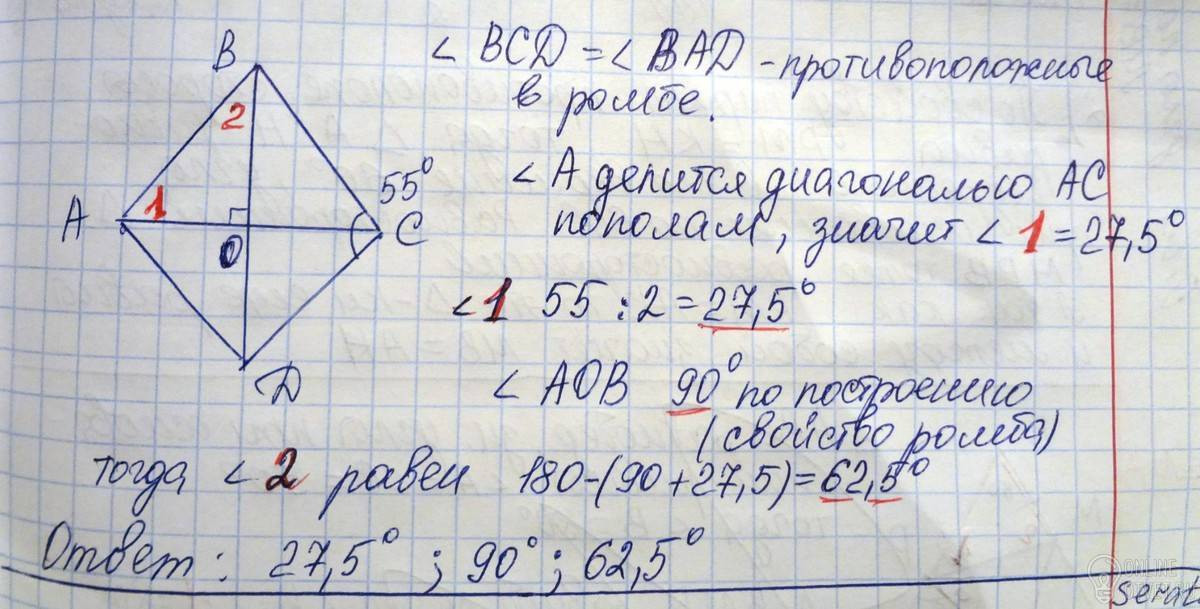 B
2
A
1
O
55°
C
D
∠ BCD = ∠ BAD - противоположные
в ромбе.
∠ А делится диагональю АС
пополам, значит ∠ 1 = 27,5°
∠1 55 : 2 = 27,5°
∠ AOB 90° по построению
(свойство ромба)
тогда ∠ 2 равен 180-(90+27,5)=62,5°
Ответ: 27,5° ; 90° ; 62,5°
ONLINE